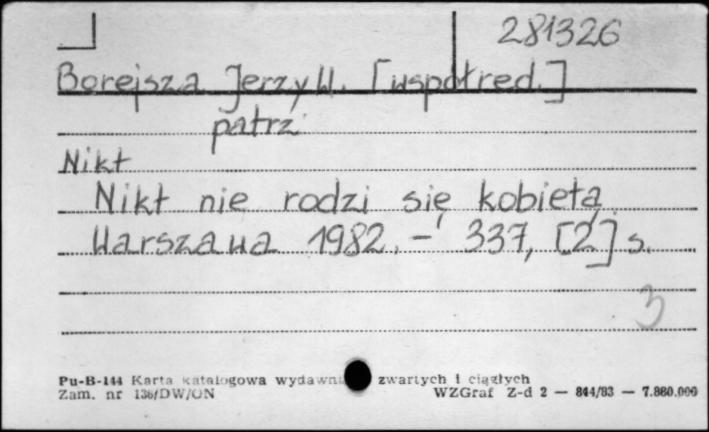 281326
Borejsza Jerzy W. [współred.]
patrz
Nikt
Nikt nie rodzi się kobietą.
Warszawa 1982. - 337, [2] s.
3
Pu-B-144 Karta katalogowa zwartych i ciągłych
Zam. nr 136/DW/ON WZGraf Z-d 2 — 844/83 — 7.860.000